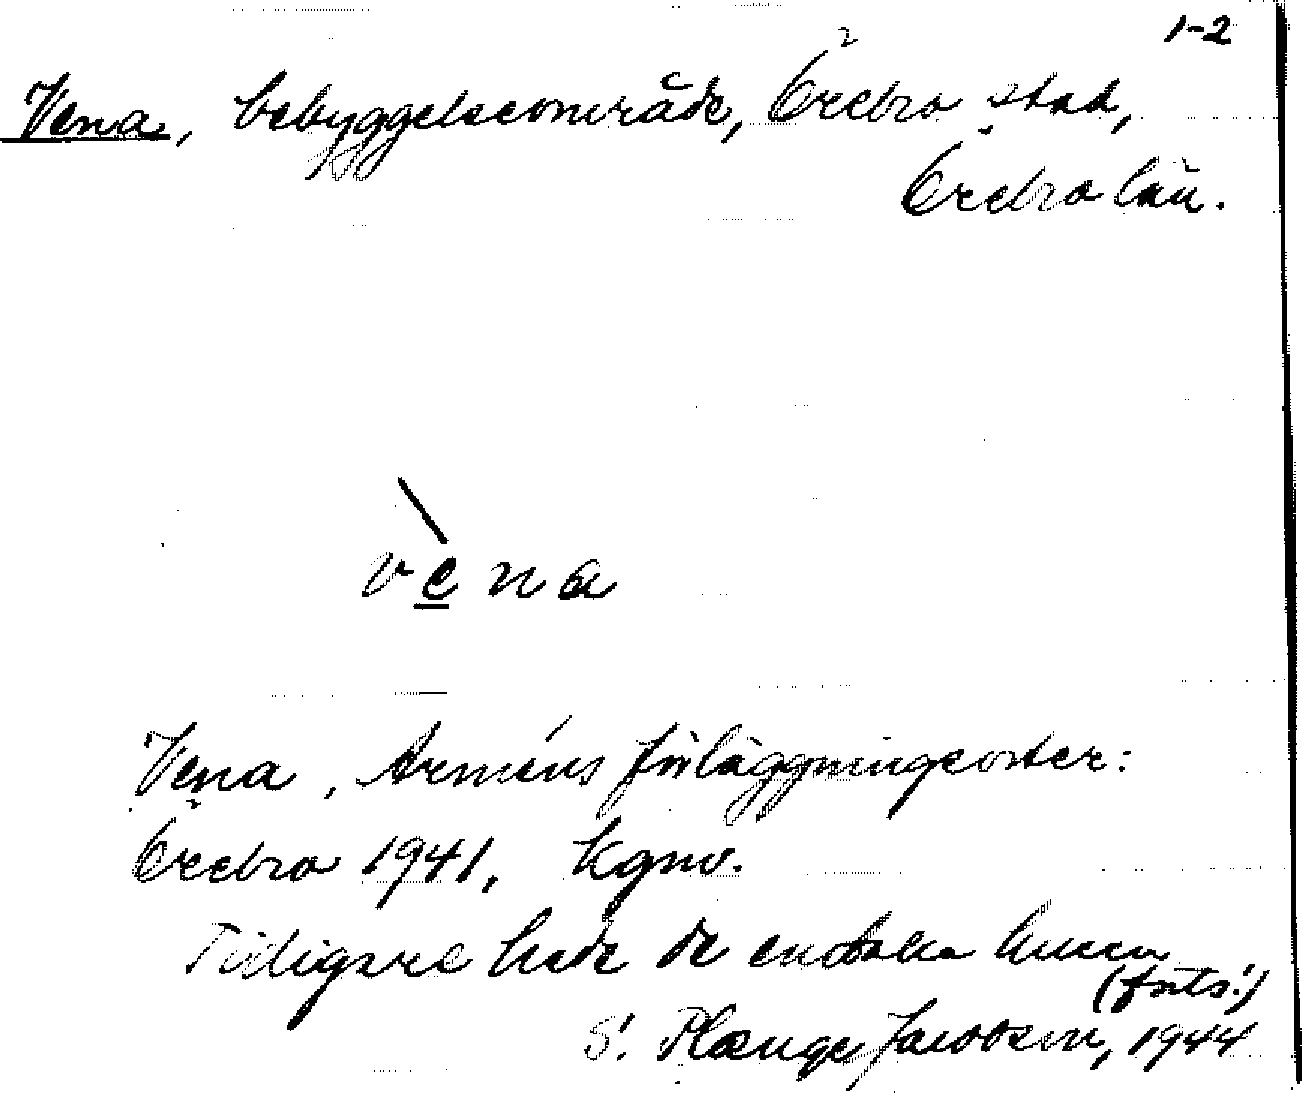 1-2
Vena, bebyggelseområde, Örebro stad,
Örebro län.
vèna
Vena, Arméns förläggningsorter:
Örebro 1941, Kgmv.
Tidigare hade de enstaka husen
(forts.)
S. Plænge Jacobson, 1944